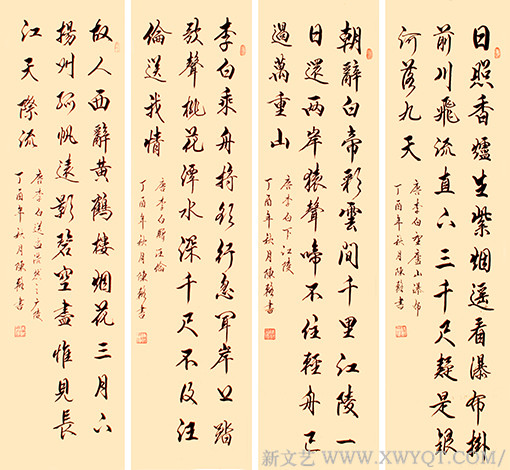 日照香爐生紫烟遥看瀑布掛
前川飛流直下三千尺疑是銀
河落九天
唐李白望廬山瀑布
丁酉年秋月陳書
朝辭白帝彩雲間千里江陵一
日還兩岸猿聲啼不住輕舟已
過萬重山
唐李白下江陵
丁酉年秋月陳書
李白乘舟將欲行忽聞岸上踏
歌聲桃花潭水深千尺不及汪
倫送我情
唐李白贈汪倫
丁酉年秋月陳書
故人西辭黄鶴樓烟花三月下
揚州孤帆遠影碧空盡惟見長
江天際流
唐李白送孟浩然之廣陵
丁酉年秋月陳書
新文艺 WWW.XWYQT.COM/